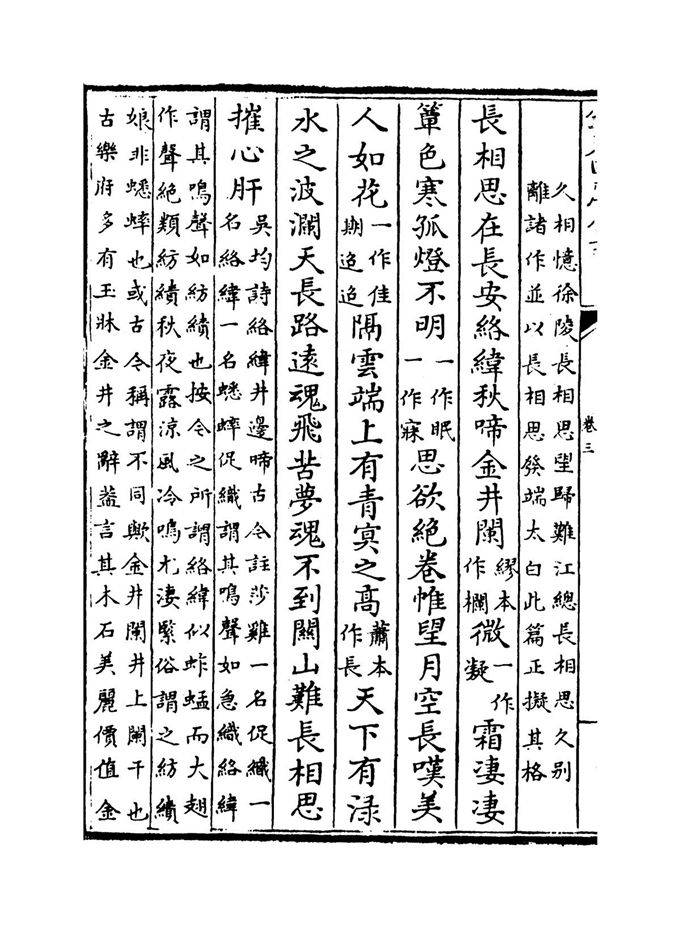 卷三
久相憶徐陵長相思望歸難江總長相思久别
離諸作並以長相思發端太白此篇正擬其格
長相思在長安絡緯秋啼金井闌繆本作欄微一作凝霜凄凄
簟色寒孤燈不明一作眠一作寐思欲絕卷帷望月空長嘆美
人如花一作佳期迢迢隔雲端上有青冥之高蕭本作長天下有渌
水之波瀾天長路遠魂飛苦夢魂不到關山難長相思
摧心肝吳均詩絡緯井邊啼古今註莎雞一名促織一
名絡緯一名蟋蟀促織謂其鳴聲如急織絡緯
謂其鳴聲如紡績也按今之所謂絡緯似蚱蜢而大翅
作聲絕類紡績秋夜露涼風冷鳴尤凄緊俗謂之紡績
娘非蟋蟀也或古今稱謂不同歟金井闌井上闌干也
古樂府多有玉牀金井之辭蓋言其木石美麗價值金